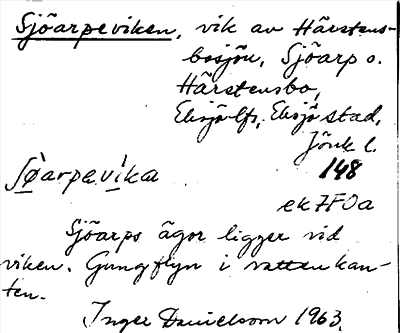 Sjöarpeviken, vik av Härstens-
bosjön, Sjöarp o.
Härstensbo,
Eksjö lfs, Eksjö stad,
Jönk l.
148
ek 7F0a
Sjöarps ägor ligger vid
viken. Gungflyn i vattenkan-
ten.
Inger Danielsson 1963